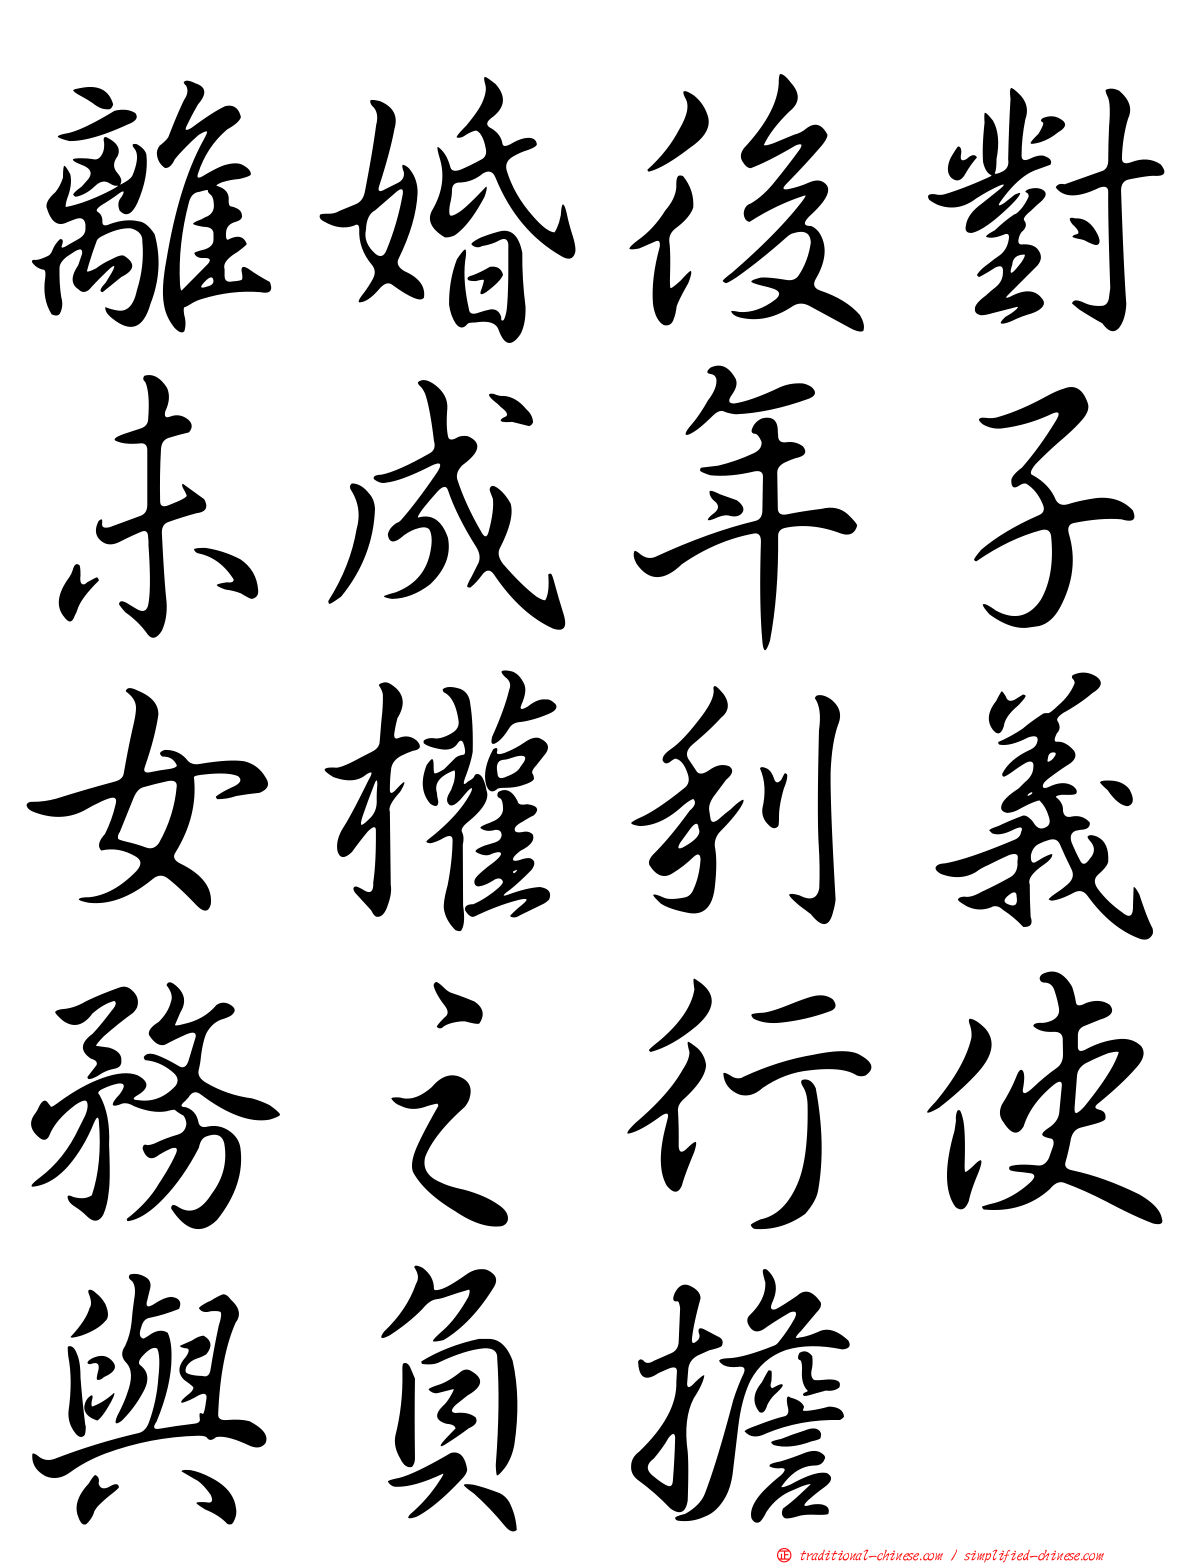 離婚後對
未成年子
女權利義
務之行使
與負擔
㊣ traditional-chinese.com / simplified-chinese.com